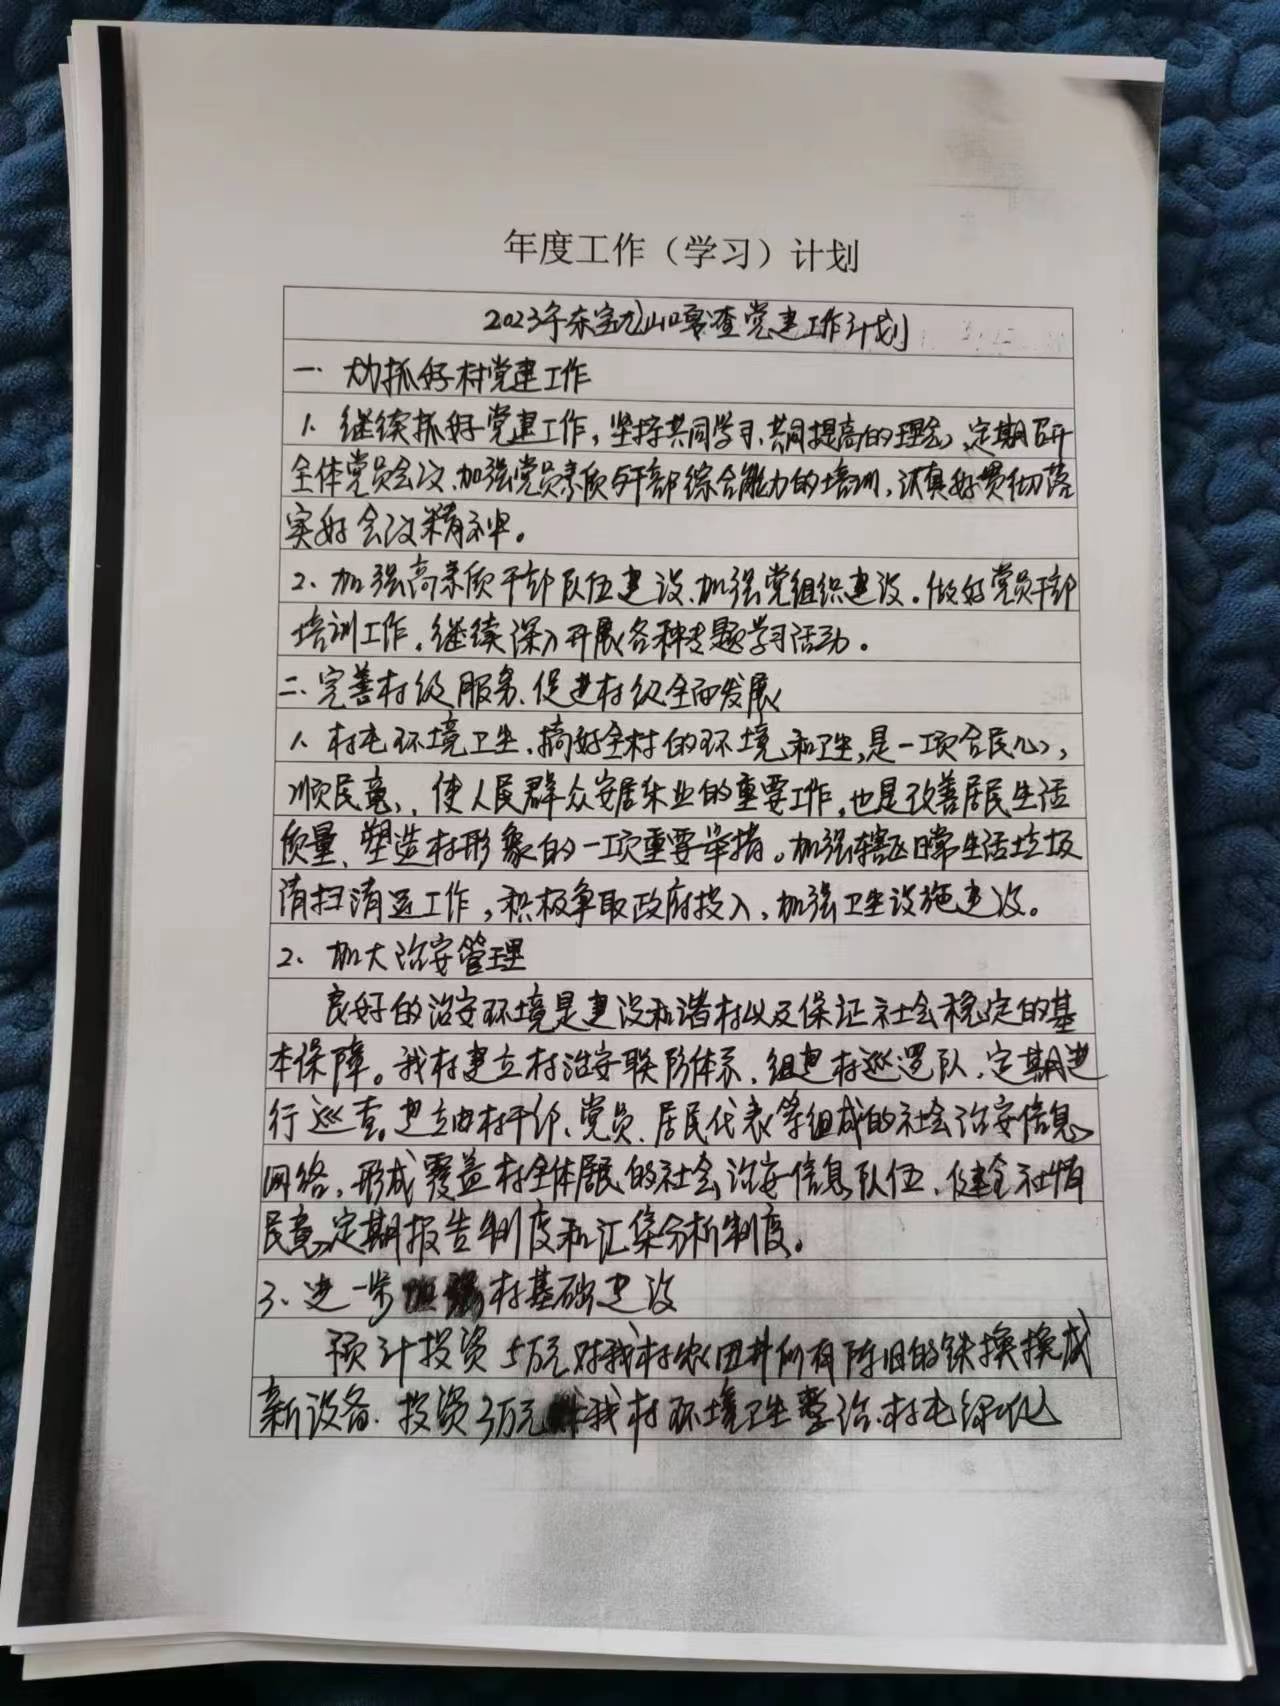 年度工作（学习）计划
2023年东宝龙山嘎查党建工作计划
一、
抓好村党建工作
1、继续抓好党建工作，坚持共同学习、共同提高的理念，定期召开
全体党员会议、加强党员素质与干部综合能力的培训，认真好贯彻落
实好会议精神。
2、加强高素质干部队伍建设、加强党组织建设。做好党员干部
培训工作，继续深入开展各种专题学习活动。
二、完善村级服务、促进村级全面发展
1、村屯环境卫生、搞好全村的环境和卫生，是一项合民心，
顺民意，使人民群众安居乐业的重要工作，也是改善居民生活
质量、塑造村形象的一项重要举措。加强辖区日常生活垃圾
清扫清运工作，积极争取政府投入，加强卫生设施建设。
2、加大治安管理
良好的治安环境是建设和谐村以及保证社会稳定的基
本保障。我村建立村治安联防体系，组建村巡逻队，定期进
行巡查。建立由村干部、党员、居民代表等组成的社会治安信息
网络，形成覆盖村全体居民的社会治安信息队伍，健全社情
民意定期报告制度和汇集分析制度。
3、进一步加强村基础建设
预计投资5万元对我村农田井所有陈旧的铁换换成
新设备、投资3万元对我村环境卫生整治、村屯绿化